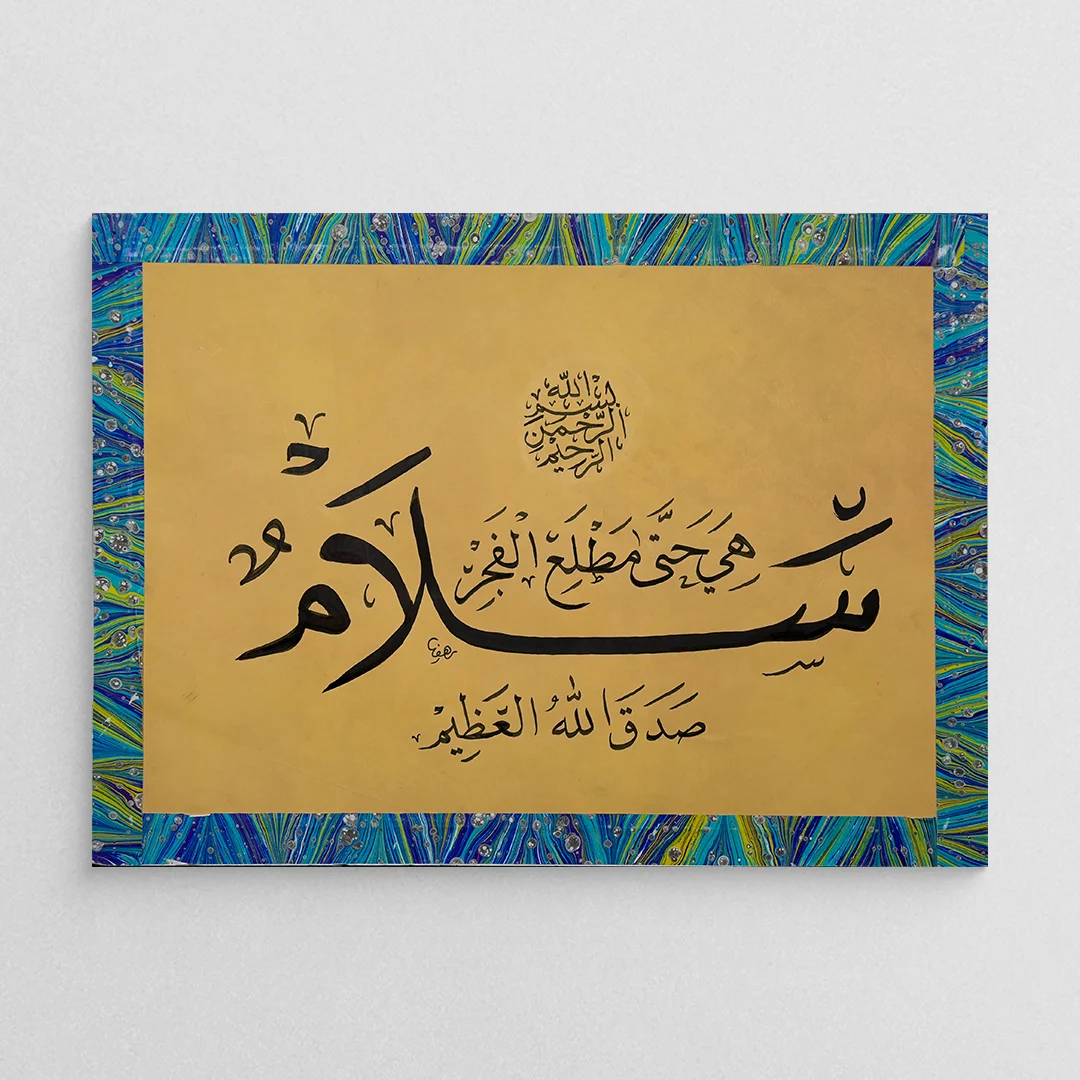 بسم الله الرَّحْمن الرَّحيم
سَلَامٌ
هِيَ حَتَّى مَطْلَعِ الْفَجْرِ
صَدَقَ اللهُ الْعَظِيمْ